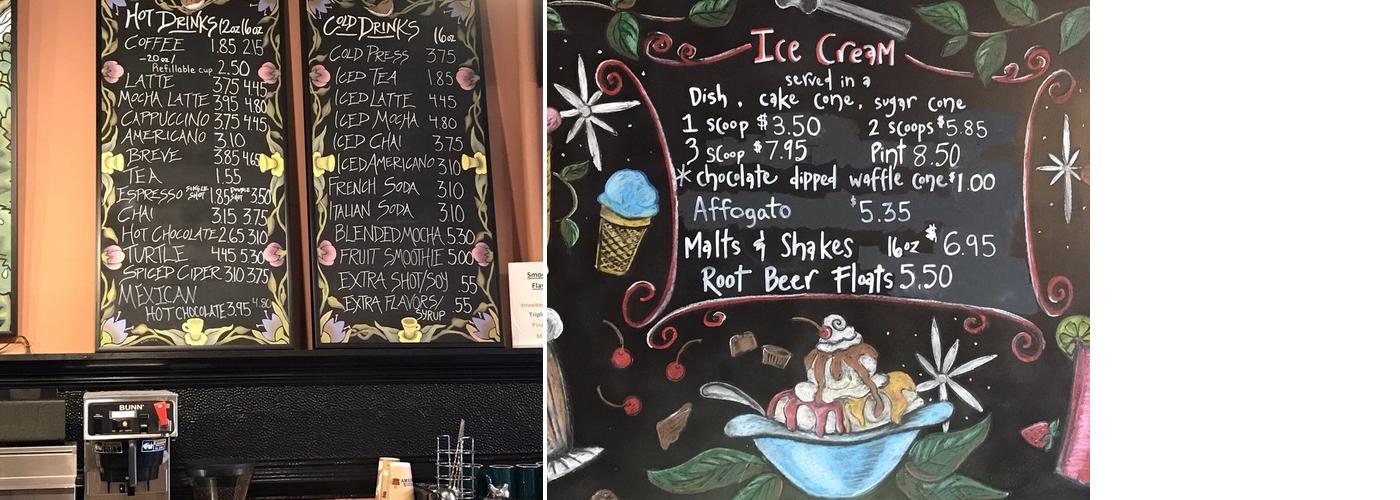 HOT DRINKS 12oz 16oz
COFFEE 1.85 2.15
-20oz/
Refillable cup 2.50
LATTE 3.75 4.45
MOCHA LATTE 3.95 4.80
CAPPUCCINO 3.75 4.45
AMERICANO 3.10
BREVE 3.85 4.65
TEA 1.55
ESPRESSO SINGLE SHOT 1.85 DOUBLE SHOT 3.50
CHAI 3.15 3.75
HOT CHOCOLATE 2.65 3.10
TURTLE 4.45 5.30
SPICED CIDER 3.10 3.75
MEXICAN
HOT CHOCOLATE 3.95 4.80
COLD DRINKS 16oz
COLD PRESS 3.75
ICED TEA 1.85
ICED LATTE 4.45
ICED MOCHA 4.80
ICED CHAI 3.75
ICED AMERICANO 3.10
FRENCH SODA 3.10
ITALIAN SODA 3.10
BLENDED MOCHA 5.30
FRUIT SMOOTHIE 5.00
EXTRA SHOT/SOY .55
EXTRA FLAVORS/ .55
SYRUP
BUNN
Ice Cream
served in a
Dish, cake cone, sugar cone
1 scoop $3.50 2 scoops $5.85
3 scoop $7.95 Pint 8.50
* chocolate dipped waffle cone $1.00
Affogato $5.35
Malts & Shakes 16oz $6.95
Root Beer Floats 5.50